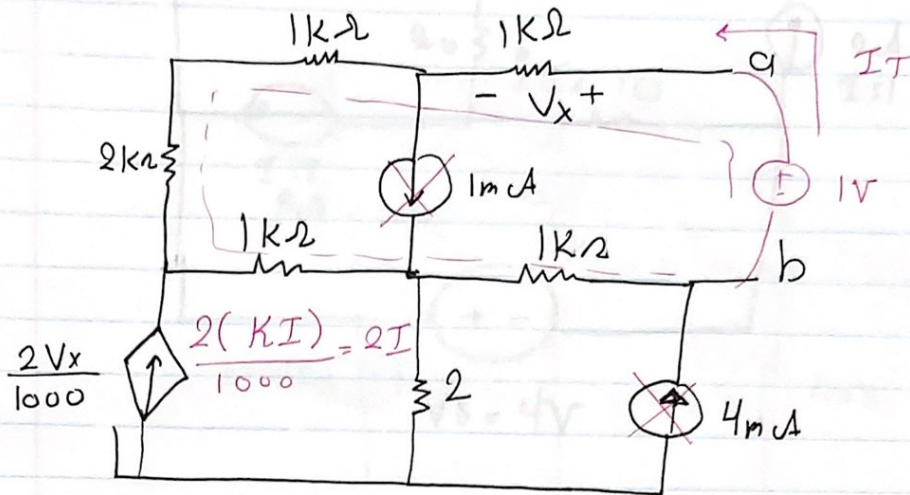 1KΩ
1KΩ
a
IT
- Vx +
2KΩ
1mA
1V
1KΩ
1KΩ
b
2Vx
1000
2(KI) = 2I
1000
2
4mA